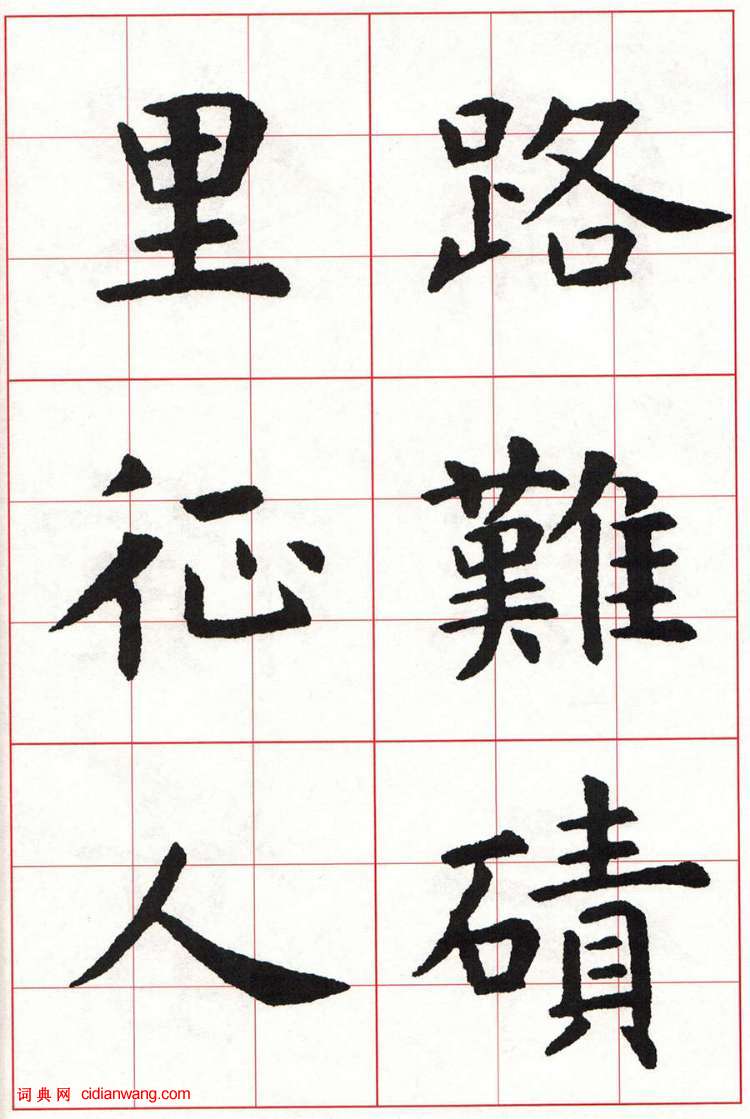 路難磧
里征人
词典网 cidianwang.com